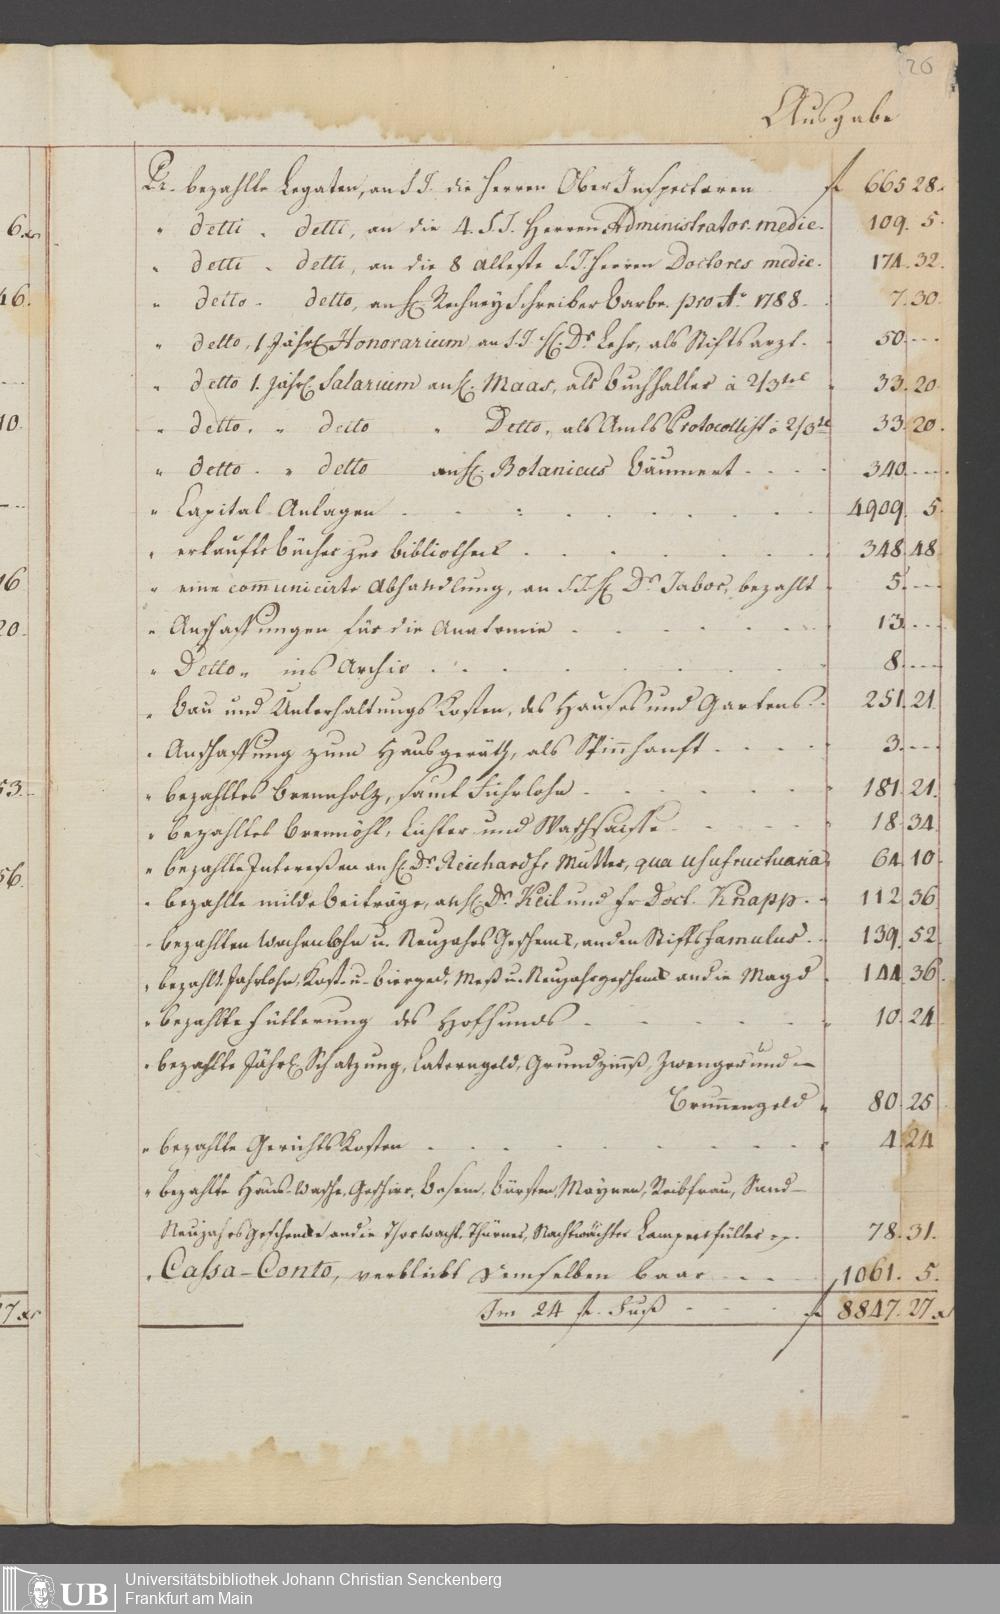 26
Ausgabe
Pr. bezahlte Legaten, an S.T. die Herren Ober Inspectoren f 665 28.
6.xr " detti " detti, an die 4. S.T. Herren Administrator. medic. 109. 5.
" detti " detti, an die 8 älteste S.T. Herren Doctores medic. 174. 32.
46. " detto - detto, an H. Rechney Schreiber Barbe. pro Ao. 1788. 7. 30.
" detto, 1 Jährl. Honorarium, an S.T. H. Dr. Lehr, als Stiftsarzt. 50.---
" detto 1. Jährl. Salarium an H. Maas, als Buchhalter à 2/3tel 33. 20
10. " detto. " detto " Detto, als Amts Protocollist à 2/3tel 33. 20.
" detto - " detto an H. Botanicus Bäumert - - - - 340.---
" Capital-Anlagen 4909. 5.
" erkaufte Bücher zur Bibliotheck 348. 48
16 " eine communicirte Abhandlung, an S.T. H. Dr. Jabor, bezahlt 5.---
20. " Anschaffungen für die Anatomie 13.---
" Detto " ins Archiv 8.---
" Bau und Unterhaltungs Kosten, des Hauses und Gartens. 251. 21
" Anschaffung zum Hausgeräth, als Spinnhanft 3.---
53. " bezahltes Brennholz, samt Fuhrlohn 181. 21.
" bezahltes Brennöhl, Lichter und Waschsaiffe 18. 34
56. " bezahlte Interessen an H. Dr. Reichards Mutter, qua Usufructuaria 64. 10
" bezahlte milde Beiträge, an H. Dr. Keil und Fr. Doct. Knapp. 112. 36
" bezahlten Wochenlohn u. Neujahrs Geschenk, an den Stifts famulus. 139. 52
" bezahlt. Jahrlohn, Kost- u. Biergeld, Meß u. Neujahrgeschenk an die Magd 144. 36.
" bezahlte Fütterung des Hofhunds 10. 24
" bezahlte Jährl. Schatzung, Laterngeld, Grundzinnß, Zwenger und
Brunnengeld " 80. 25
" bezahlte Gerichts Kosten 4. 24
" bezahlte Haus-Wasche, Geschirr, Besem, Bürsten, Reibfrau, Sand-
Neujahrs Geschenke an die Thorwacht, Thürner, Nachtwächter Lampenfüller 78. 31.
" Cassa-Conto, verbleibt demselben baar 1061. 5.
17xr Im 24 f. Fuß f 8847. 27 xr
UB
Universitätsbibliothek Johann Christian Senckenberg
Frankfurt am Main